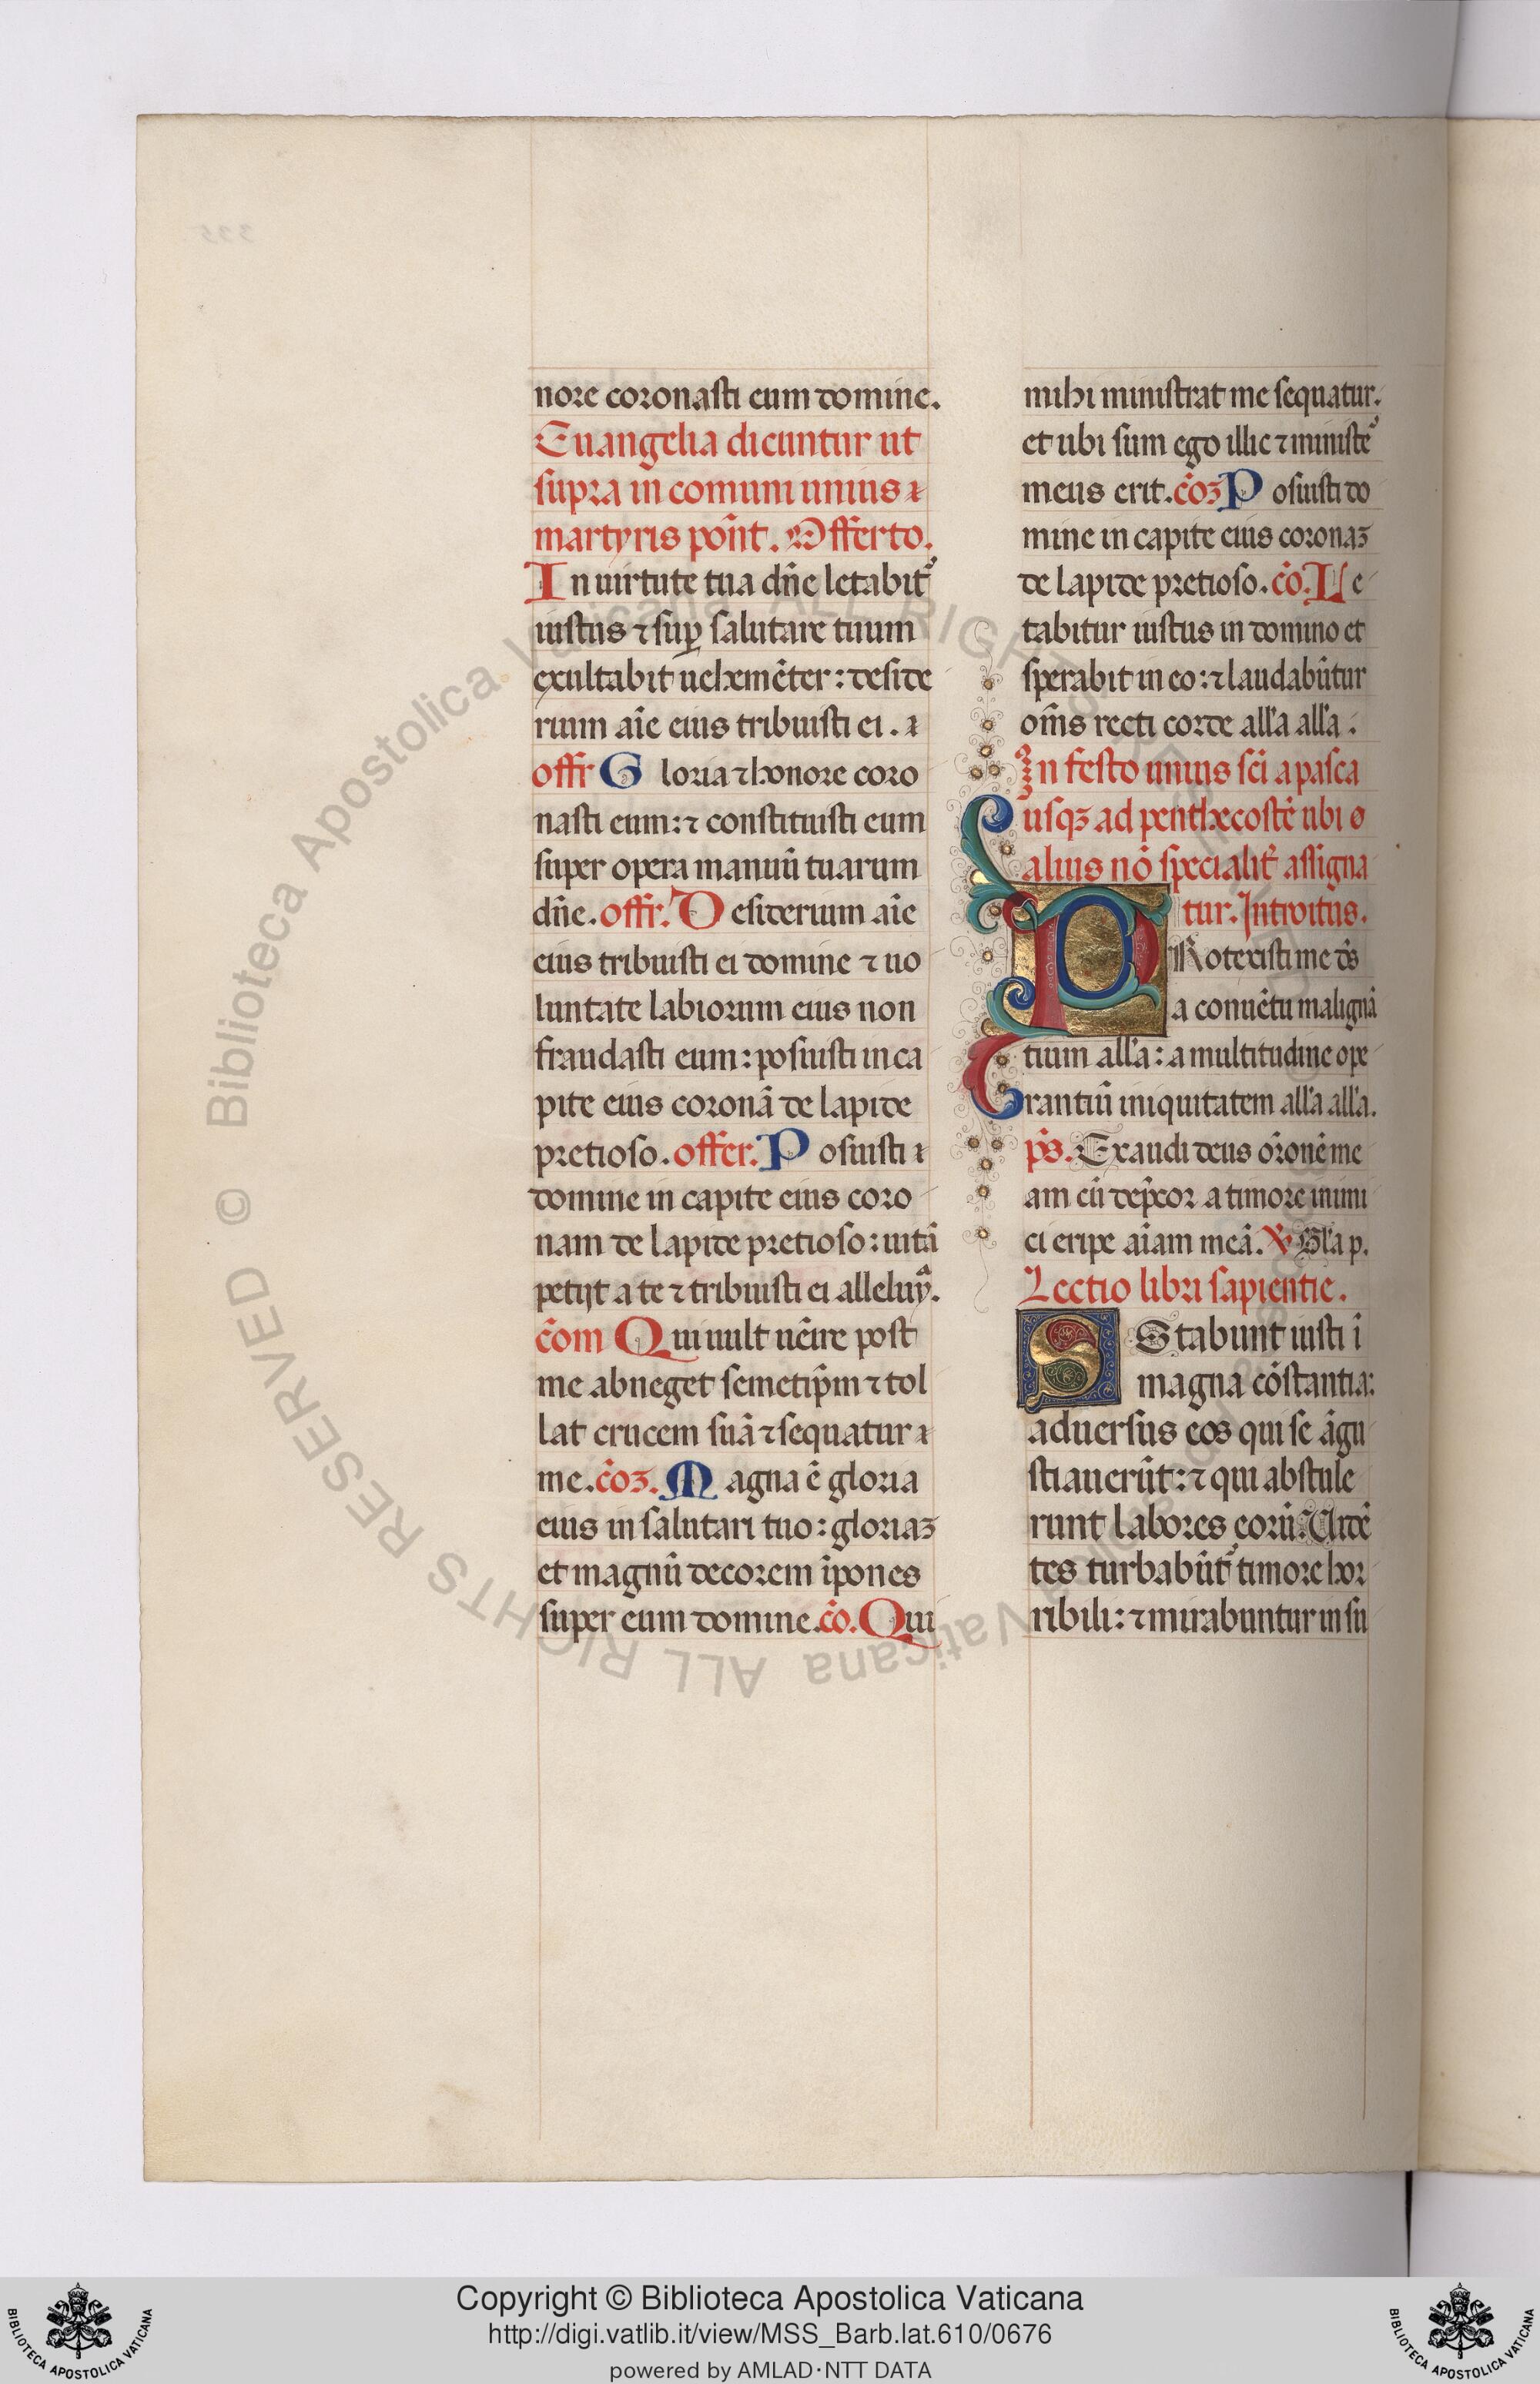 nore coronasti eum domine.
Euangelia dicuntur ut
supra in comum unius
martyris pon̄t. Offerto.
In uirtute tua dn̄e letabit᷑
iustus ⁊ suꝑ salutare tuum
exultabit uehemēter: deside
rium aīe eius tribuisti ei.
offr Gloria ⁊ honore coro
nasti eum: ⁊ constituisti eum
super opera manuū tuarum
dn̄e. offr̄. Desiderium aīe
eius tribuisti ei domine ⁊ uo
luntate labiorum eius non
fraudasti eum: posuisti in ca
pite eius coronā de lapide
pretioso. offer. Posuisti
domine in capite eius coro
nam de lapide pretioso: uitā
petijt a te ⁊ tribuisti ei alleluyᵃ.
cōm Qui uult uēire post
me abneget semetip̄m ⁊ tol
lat crucem suā ⁊ sequatur
me. cōꝫ. Magna ē gloria
eius in salutari tuo: gloriaꝫ
et magnū decorem īpones
super eum domine. cō. Qui
mihi ministrat me sequatur.
et ubi sum ego illic ⁊ ministe᷑
meus erit. cōꝫ Posuisti do
mine in capite eius coronaꝫ
de lapide pretioso. cō. Le
tabitur iustus in domino et
sperabit in eo: ⁊ laudabūtur
om̄s recti corde all'a all'a.
In festo unius sc̄i a pasca
usqꝫ ad penthecostē ubi
alius nō specialit᷑ assigna
tur. Introitus.
PRotexisti me ds̄
a conuētu malignā
tium all'a: a multitudine ope
rantiū iniquitatem all'a all'a.
ps̄. Exaudi deus or̄onē me
am cū dep̄cor a timore inimi
ci eripe aīam meā. ℣ Gl'a p.
Lectio libri sapientie.
SStabunt iusti ī
magna cōstantia:
aduersus eos qui se āgu
stiauerūt: ⁊ qui abstule
runt labores eorū. Uidē
tes turbabūt᷑ timore hor
ribili: ⁊ mirabuntur in su
Copyright © Biblioteca Apostolica Vaticana
http://digi.vatlib.it/view/MSS_Barb.lat.610/0676
powered by AMLAD·NTT DATA